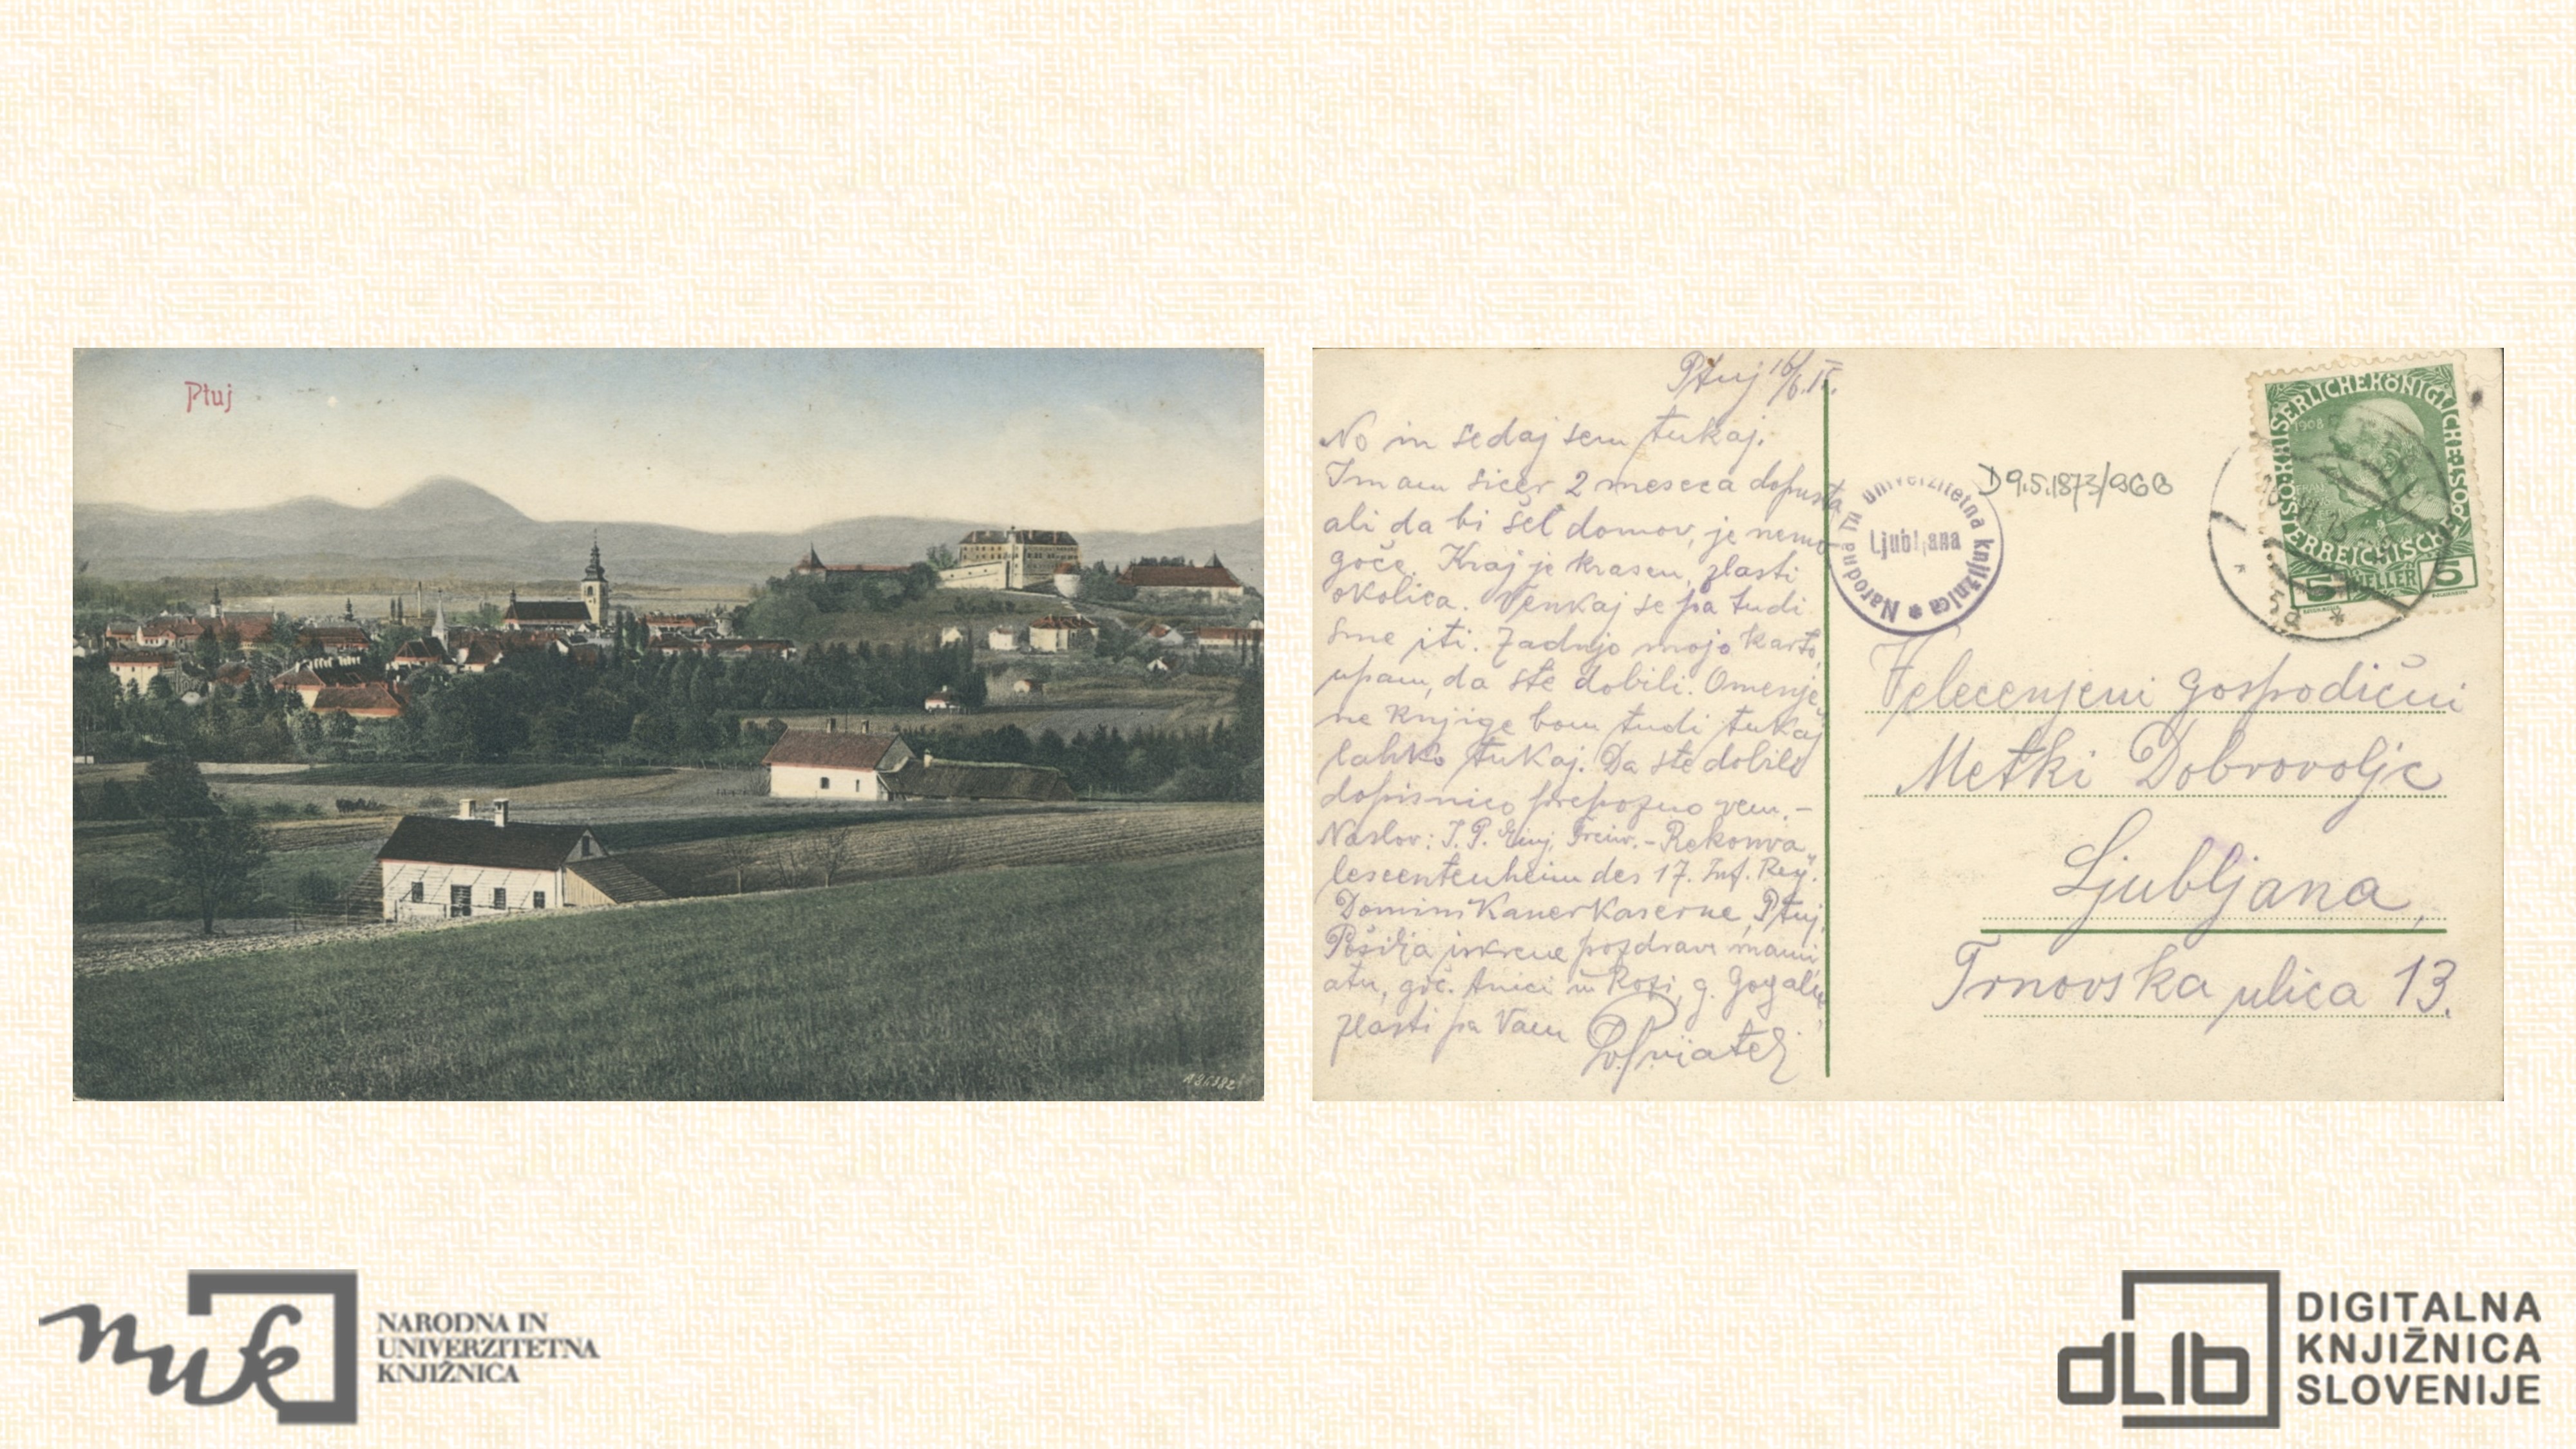 Ptuj
A86382
Ptuj 16/6.15.
No in sedaj sem tukaj.
Imam sicer 2 meseca dopusta
ali da bi šel domov, je nemo
goče. Kraj je krasen, zlasti
okolica. Venkaj se pa tudi
sme iti. Zadnjo mojo karto,
upam, da ste dobili. Omenje
ne knjige bom tudi tukaj
lahko tukaj. Da ste dobili
dopisnico prepozno vem. -
Naslov: J. P. Freiw. - Rekonva
lescentenheim des 17. Inf. Reg.
Dominikanerkaserne, Ptuj.
Pošilja iskrene pozdrave mami
atu, gdč. Anici in Rozi, g. Gogali
zlasti pa Vam
Narodna in univerzitetna knjižnica
Ljubljana
D 9.5.1873/968
1908
KAISERLICHE KÖNIGLICHE
ÖSTERREICHISCHE
5 HELLER 5
Velecenjeni gospodični
Metki Dobrovoljc
Ljubljana,
Trnovska ulica 13.
nuk
NARODNA IN
UNIVERZITETNA
KNJIŽNICA
dLib
DIGITALNA
KNJIŽNICA
SLOVENIJE